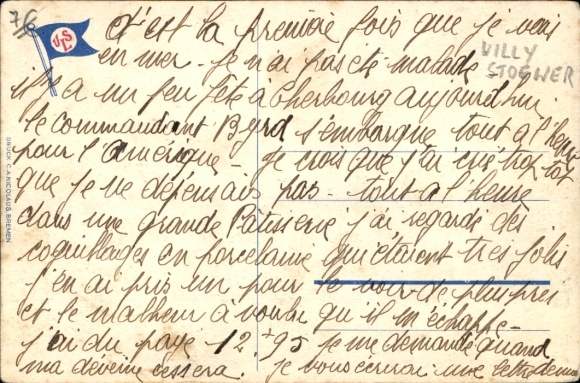 76
U.S.L
C'est la première fois que je vais
en mer - je n'ai pas été malade
VILLY
STOEWER
il y a un feu fête à Cherbourg aujourd'hui
le commandant Byrd s'embarque tout à l'heure
pour l'amérique - je crois que j'ai crié trop tôt
que je ne dépensais pas - tout à l'heure
dans une grande Pâtisserie j'ai regardé des
coquillages en porcelaine qui étaient très jolis
j'en ai pris un pour le voir de plus près
et le malheur a voulu qu'il m'échappe -
j'ai du paye 12.95 je me demande quand
ma déveine cessera. je vous écrirai une lettre demain
DRUCK C.A. NICOLAUS, BREMEN